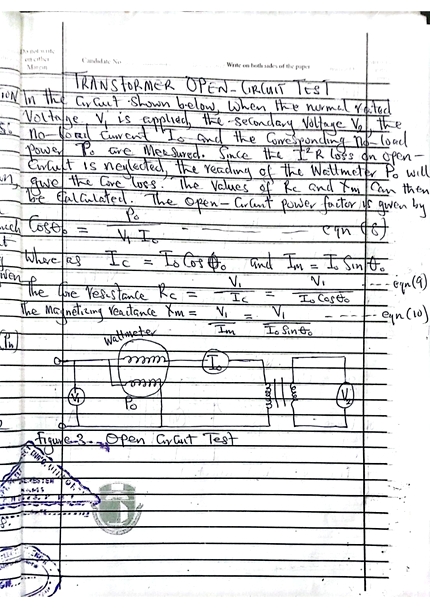 Do not write
on either
Margin
Candidate No
Write on both sides of the paper
TRANSFORMER OPEN-CIRCUIT TEST
In the Circuit shown below, when the normal rated
Voltage V1 is applied, the secondary voltage V2, the
no-load current Io and the corresponding no-load
power Po are Measured. Since the I²R loss on open-
Circuit is neglected, the reading of the Wattmeter Po will
give the Core loss. The values of Rc and Xm Can then
be Calculated. The Open-Circuit power factor is given by
Cosθo = Po / V1 Io --- eqn (8)
Where as Ic = Io Cosθo and Im = Io Sinθo
The Core resistance Rc = V1 / Ic = V1 / Io Cosθo ---- eqn(9)
The Magnetizing reactance Xm = V1 / Im = V1 / Io Sinθo --- eqn(10)
Wattmeter
Io
V1
Po
V2
Figure 3 - Open Circuit Test